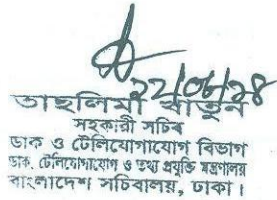 ২২/০৬/২৪
তাছলিমা খাতুন
সহকারী সচিব
ডাক ও টেলিযোগাযোগ বিভাগ
ডাক, টেলিযোগাযোগ ও তথ্য প্রযুক্তি মন্ত্রণালয়
বাংলাদেশ সচিবালয়, ঢাকা।